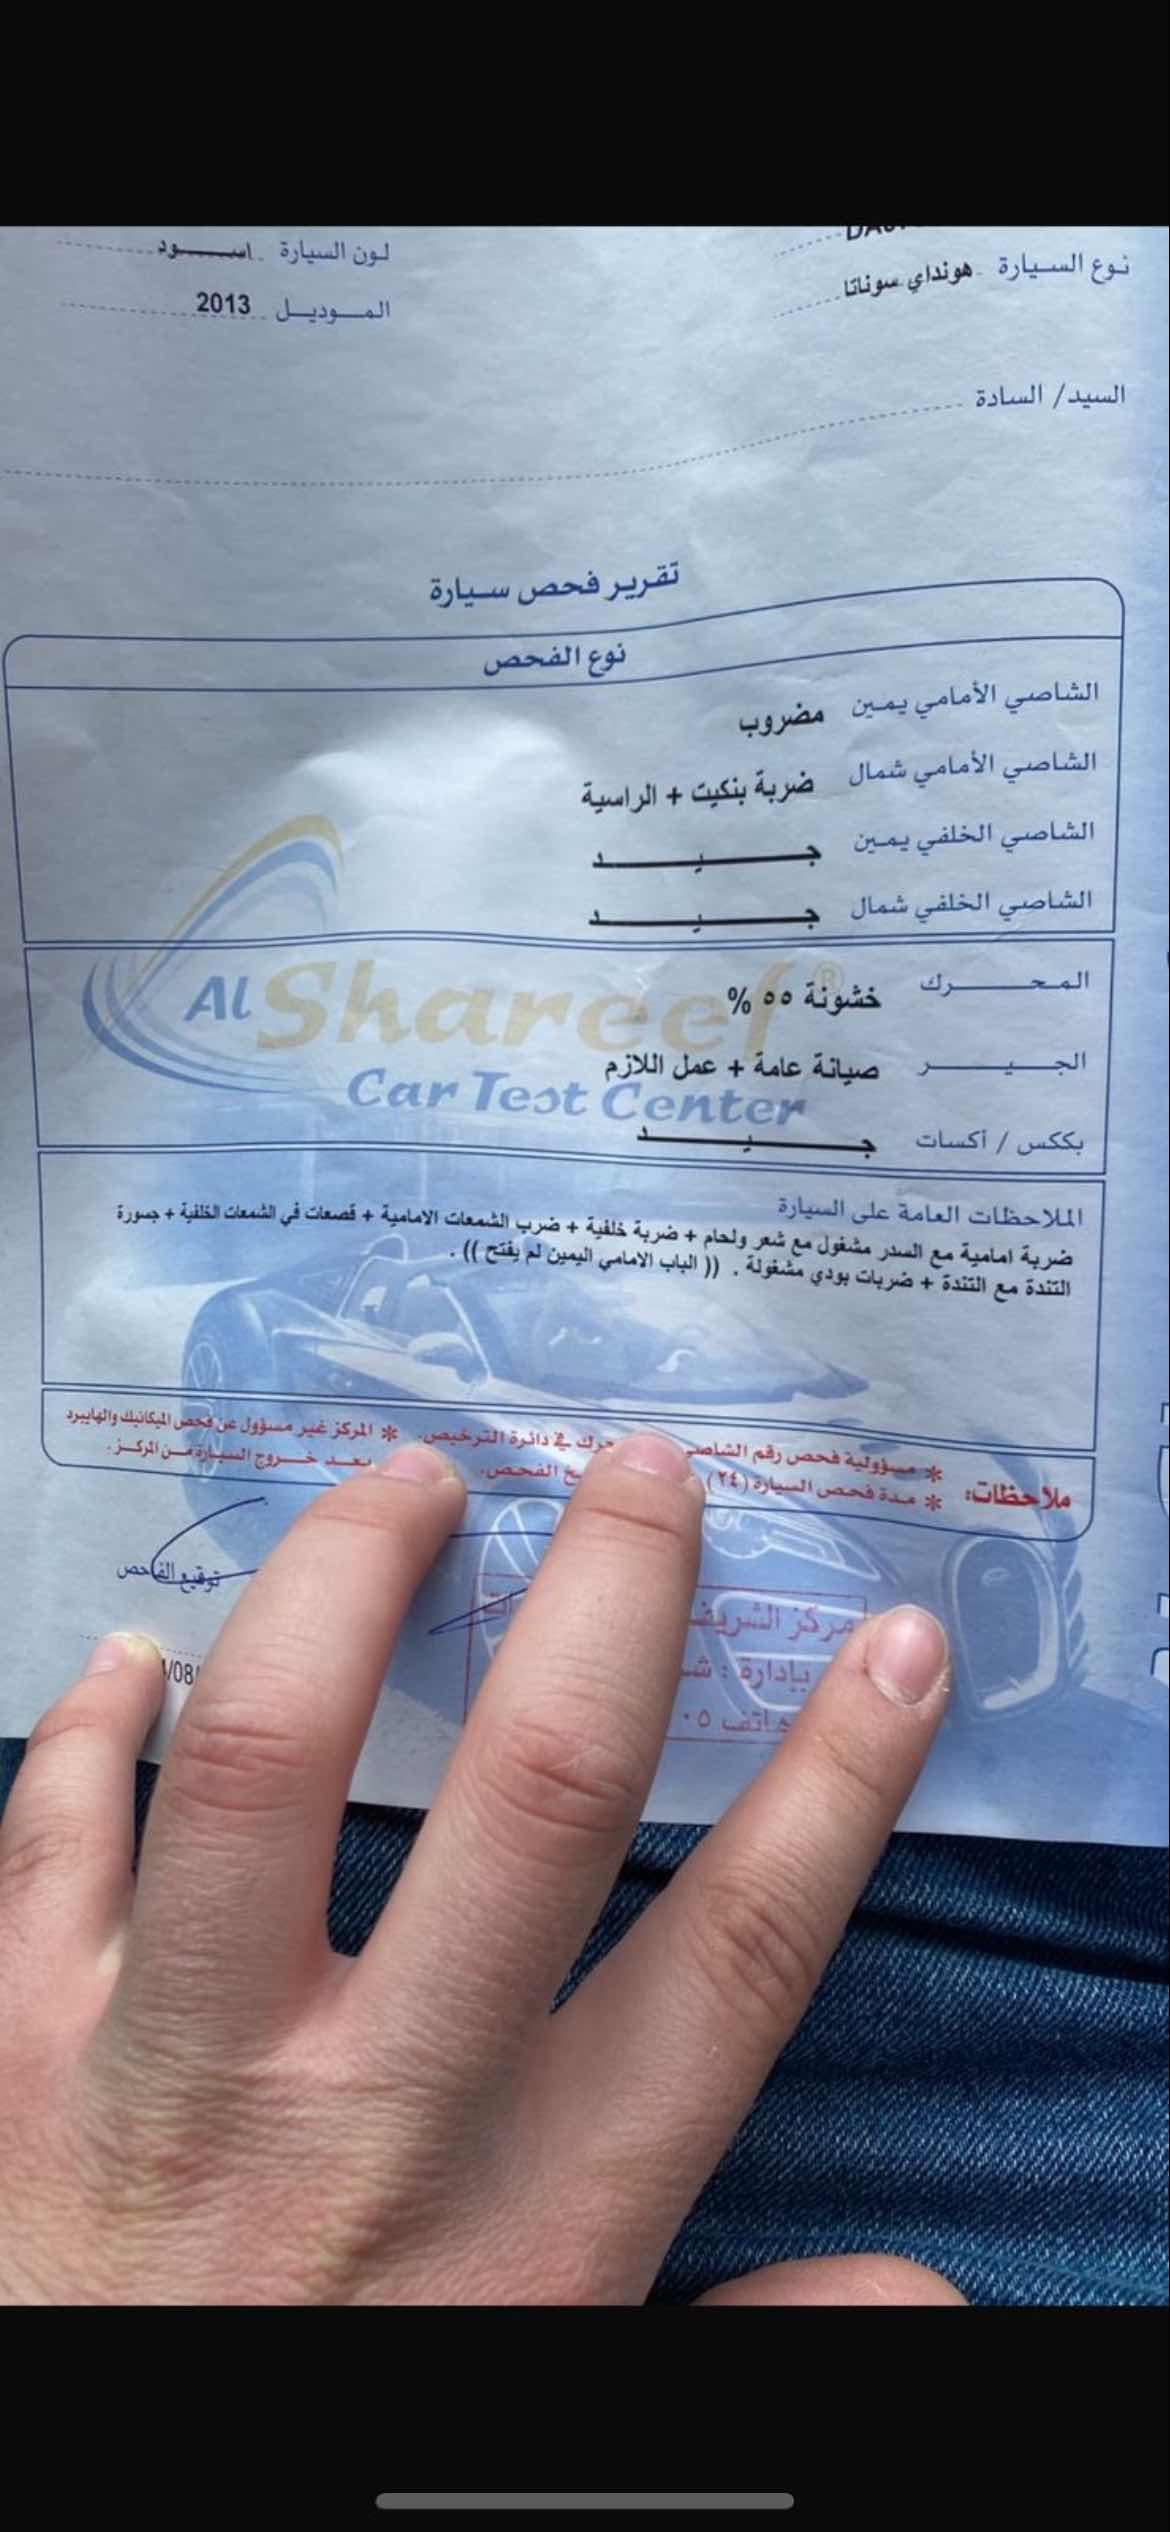 نوع السيارة هونداي سوناتا
لون السيارة اسود
الموديل 2013
السيد/ السادة
تقرير فحص سيارة
نوع الفحص
الشاصي الأمامي يمين مضروب
الشاصي الأمامي شمال ضربة بنكيت + الراسية
الشاصي الخلفي يمين جيد
الشاصي الخلفي شمال جيد
AL Shareef ®
Car Test Center
المحرك خشونة ٥٥ %
الجير صيانة عامة + عمل اللازم
بككس / أكسات جيد
الملاحظات العامة على السيارة
ضربة امامية مع السدر مشغول مع شعر ولحام + ضربة خلفية + ضرب الشمعات الامامية + قصعات في الشمعات الخلفية + جسورة
التندة مع التندة + ضربات بودي مشغولة . (( الباب الامامي اليمين لم يفتح )) .
ملاحظات: * مسؤولية فحص رقم الشاصي في دائرة الترخيص. * المركز غير مسؤول عن فحص الميكانيك والهايبرد
* مدة فحص السيارة (٢٤) الفحص. بعد خروج السيارة من المركز.
توقيع الفاحص
/08
مركز الشريف
بإدارة :
هاتف ٠٥